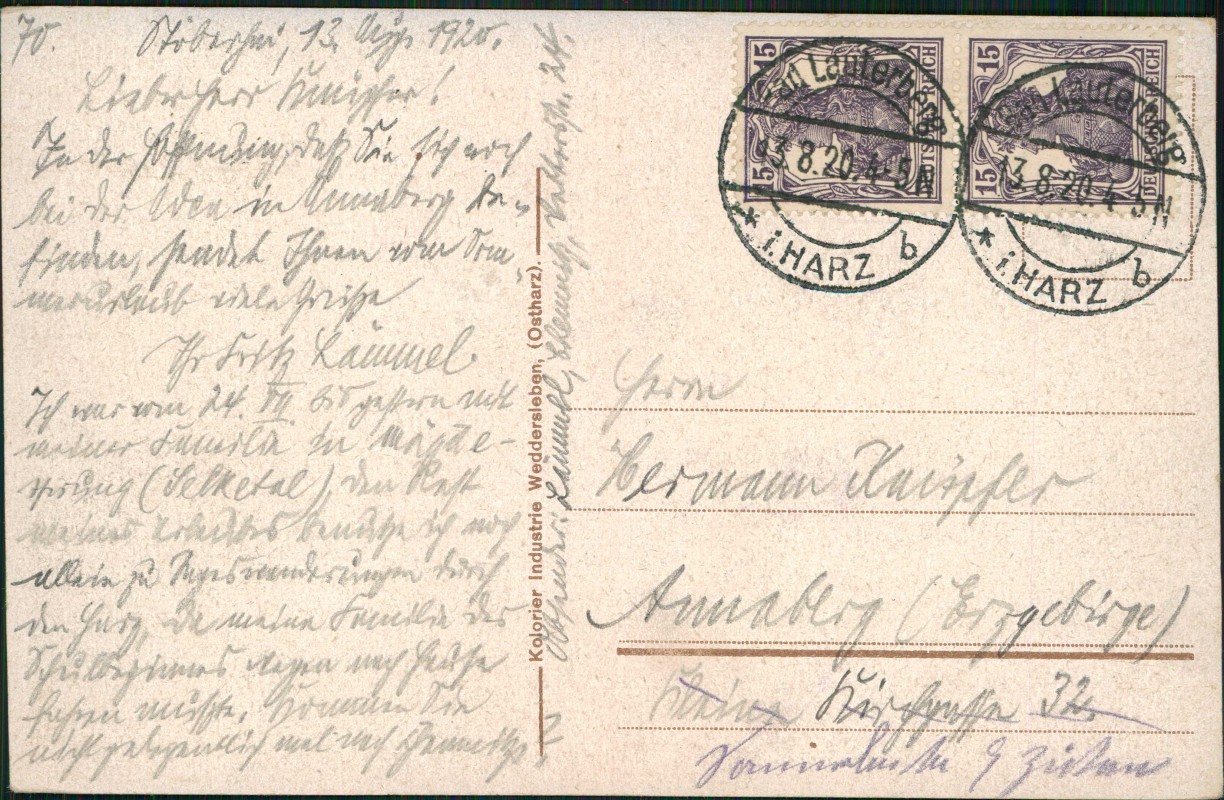 70. Stöberhai, 13. Aug. 1920.
Lieber Herr Knüpfer!
In der Hoffnung, daß Sie sich noch
bei der in Annaberg be-
finden, sendet Ihnen vom Som-
merurlaub viele Grüße
Ihr Fritz Lämmel.
Ich war vom 24. VII bis gestern mit
meiner Familie in Mägde-
sprung (Selketal), den Rest
meines Urlaubes benutze ich noch
allein zu Tageswanderungen durch
den Harz, da meine Familie des
Schulbeginnes wegen nach Hause
fahren mußte. Kommen Sie
nicht gelegentlich mal nach Chemnitz?
Kolorier Industrie Weddersleben, (Ostharz)
Absender: Lämmel, Chemnitz, 24.
15 15 DEUTSCHES REICH
15 15 DEUTSCHES REICH
Bad Lauterberg
13.8.20.4-5N
* i. HARZ b
Bad Lauterberg
13.8.20.4-5N
* i. HARZ b
Herrn
Hermann
Annaberg (Erzgebirge)
Kleine Kirchgasse 32.